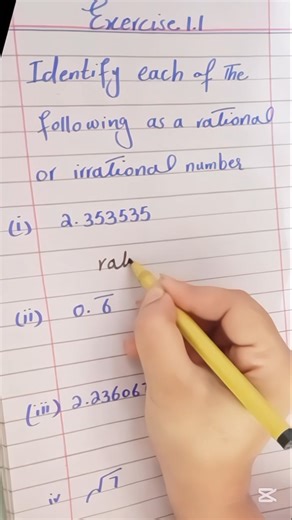 Exercise 1.1
Identify each of the
following as a rational
or irrational number
(i) 2.353535
rat
(ii) 0.6̅
(iii) 2.23606
iv √7